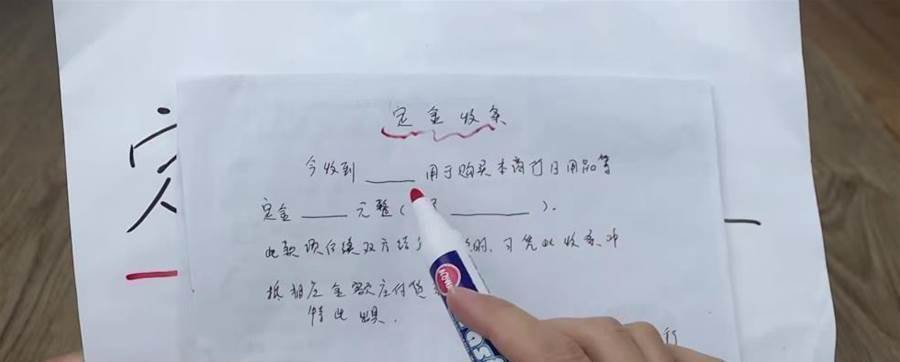 定金收条
今收到____用于购买本商行日用品等
定金____元整( ________ ).
此款项仅供双方结 时,可凭此收条冲
抵相应金额应付
特此 具.
行